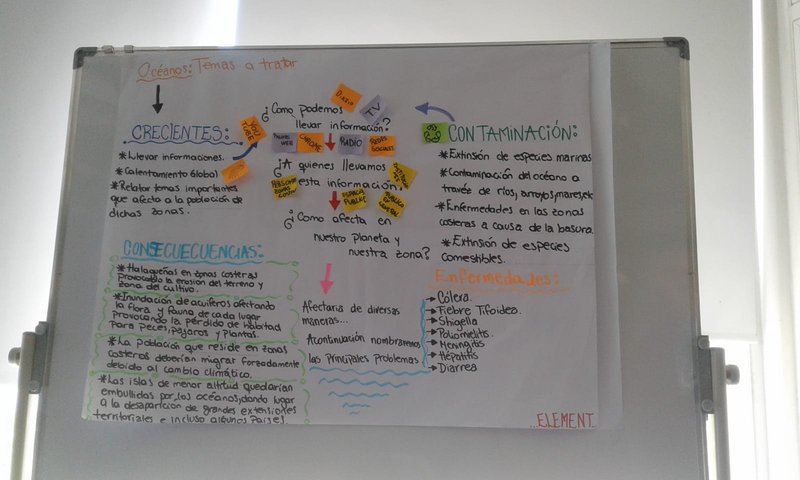 Océanos: Temas a tratar
CRECIENTES:
*Llevar informaciones.
*Calentamiento Global
*Relatar temas importantes
que afecta a la población de
dichas zonas.
YOU
TUBE
DIARIO
TV
¿Como podemos
llevar información?
PAGINAS
WEB
CHROME
RADIO
REDES
SOCIALES
¿A quienes llevamos
esta información?
ESPACIO
PUBLICO
PUBLICO EN
GENERAL
¿Como afecta en
nuestro planeta y
nuestra zona?
Afectaria de diversas
maneras...
Acontinuación nombraremos
las principales problemas
CONTAMINACIÓN:
*Extinsión de especies marinas
*Contaminación del océano a
través de ríos, arroyos, mares, etc
*Enfermedades en las zonas
costeras a causa de la basura.
*Extinsión de especies
comestibles.
Enfermedades:
Cólera.
Fiebre Tifoidea.
Shigella
Poliomelitis
Meningitis
Hepatitis
Diarrea
CONSECUECUENCIAS:
*Halaqueñas en zonas costeras
provocando la erosión del terreno y
zona del cultivo.
*Inundación de acuiferos afectando
la flora y fauna de cada lugar
provocando la pérdida de habitad
para peces, pájaros y plantas.
*La población que reside en zonas
costeras deberían migrar forzadamente
debido al cambio climático.
*Las islas de menor altitud quedarían
embullidas por los océanos, dando lugar
a la desaparición de grandes extensiones
territoriales e incluso algunos países.
...ELEMENT...